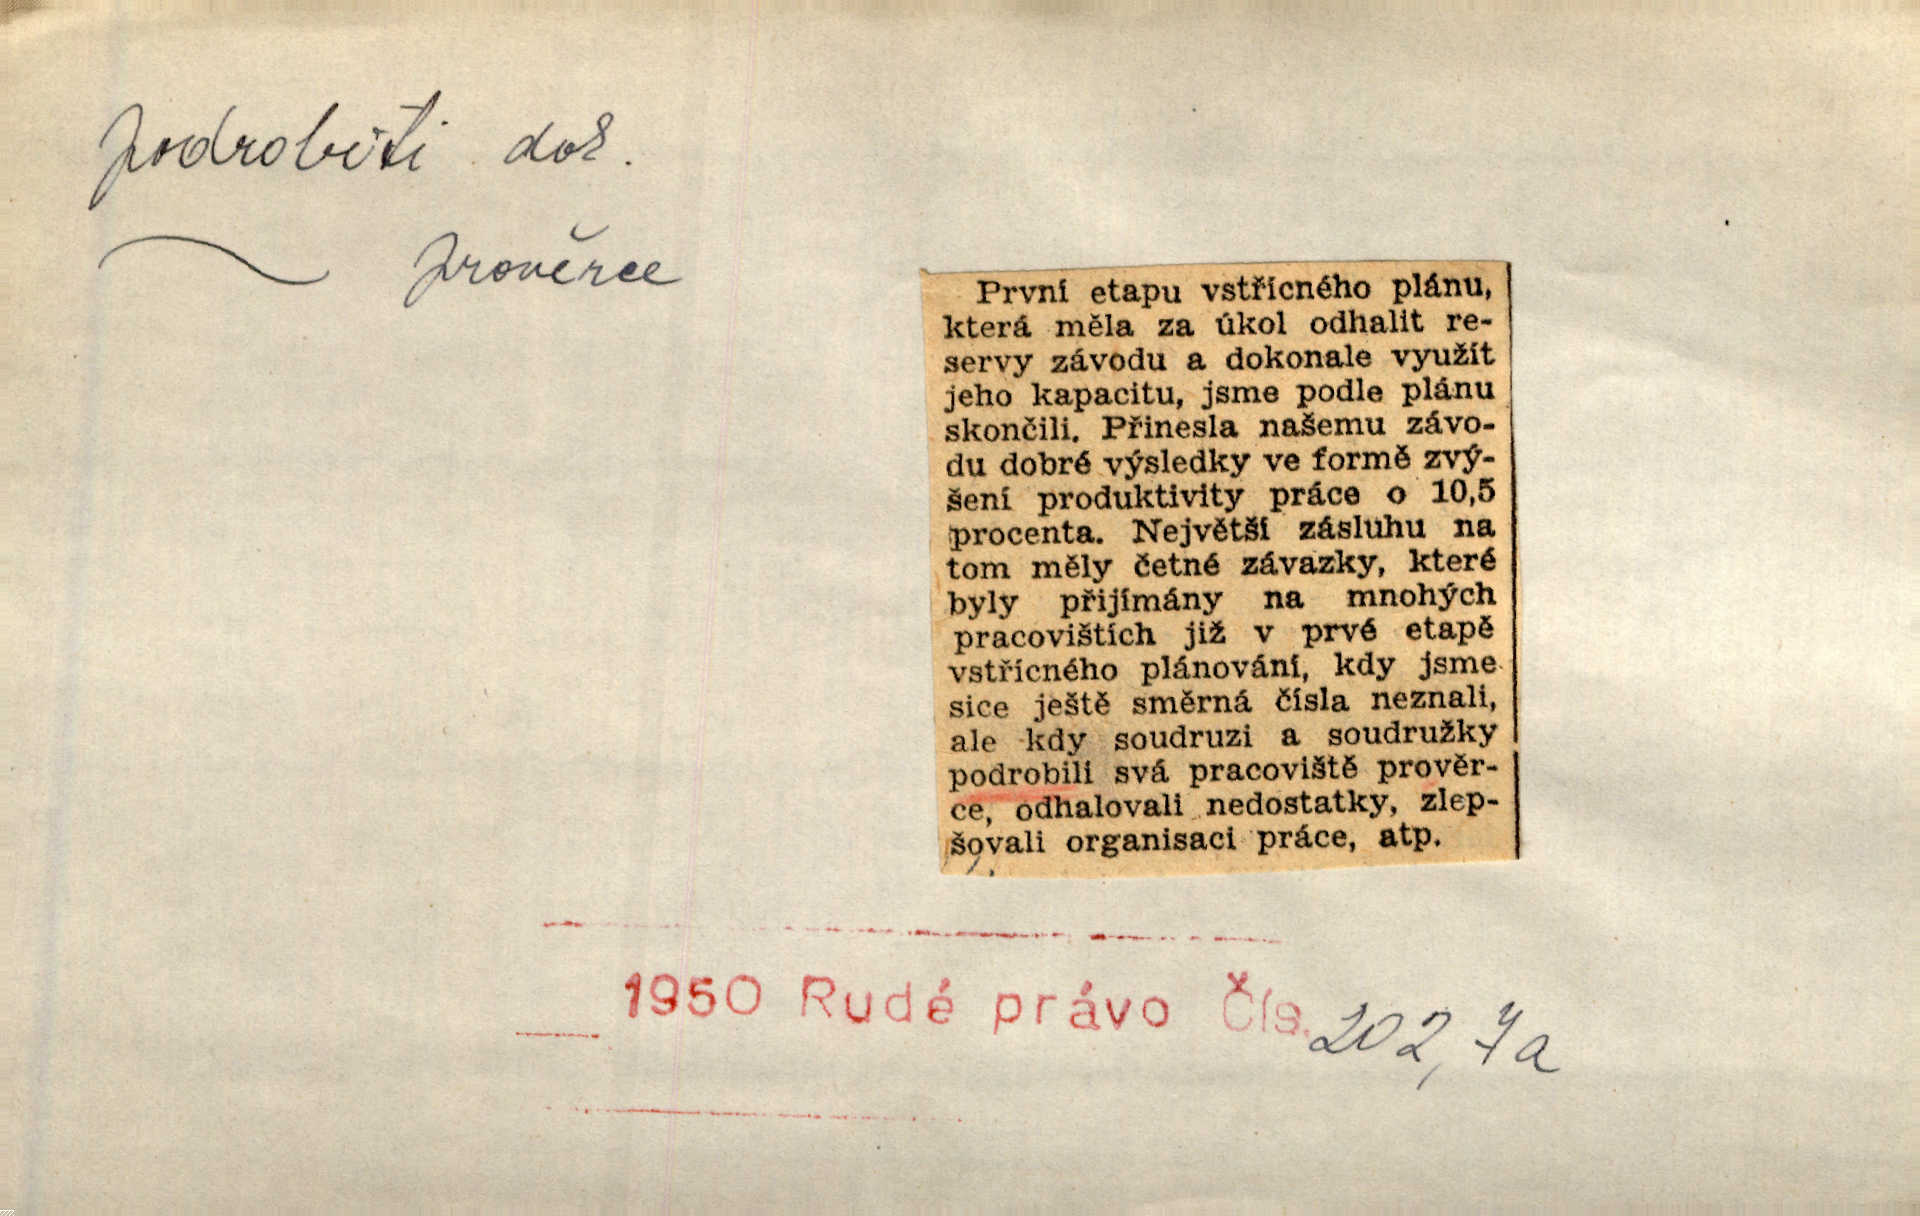 podrobiti dok.
prověrce
První etapu vstřícného plánu,
která měla za úkol odhalit re-
servy závodu a dokonale využít
jeho kapacitu, jsme podle plánu
skončili. Přinesla našemu závo-
du dobré výsledky ve formě zvý-
šení produktivity práce o 10,5
procenta. Největší zásluhu na
tom měly četné závazky, které
byly přijímány na mnohých
pracovištích již v prvé etapě
vstřícného plánování, kdy jsme
sice ještě směrná čísla neznali,
ale kdy soudruzi a soudružky
podrobili svá pracoviště prověr-
ce, odhalovali nedostatky, zlep-
šovali organisaci práce, atp.
1950 Rudé právo Čís. 202, 7a